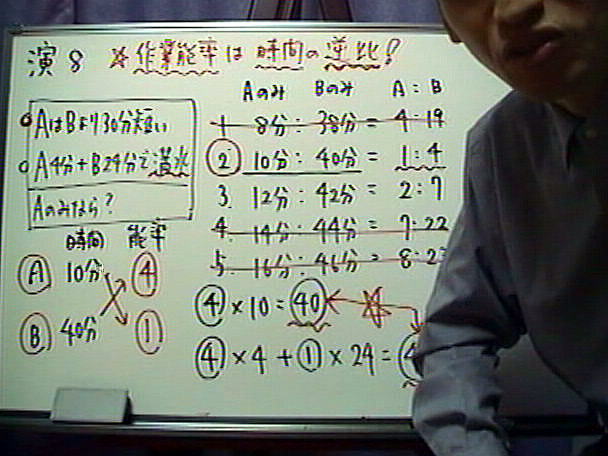 演8 ☆作業能率は時間の逆比!
Aのみ Bのみ A:B
AはBより30分短い
A4分+B24分で満水
Aのみなら?
1 8分:38分=4:19
2 10分:40分=1:4
3. 12分:42分=2:7
4. 14分:44分=7:22
5. 16分:46分=8:2
時間 能率
A 10分 4
B 40分 1
4×10=40
4×4+1×24=